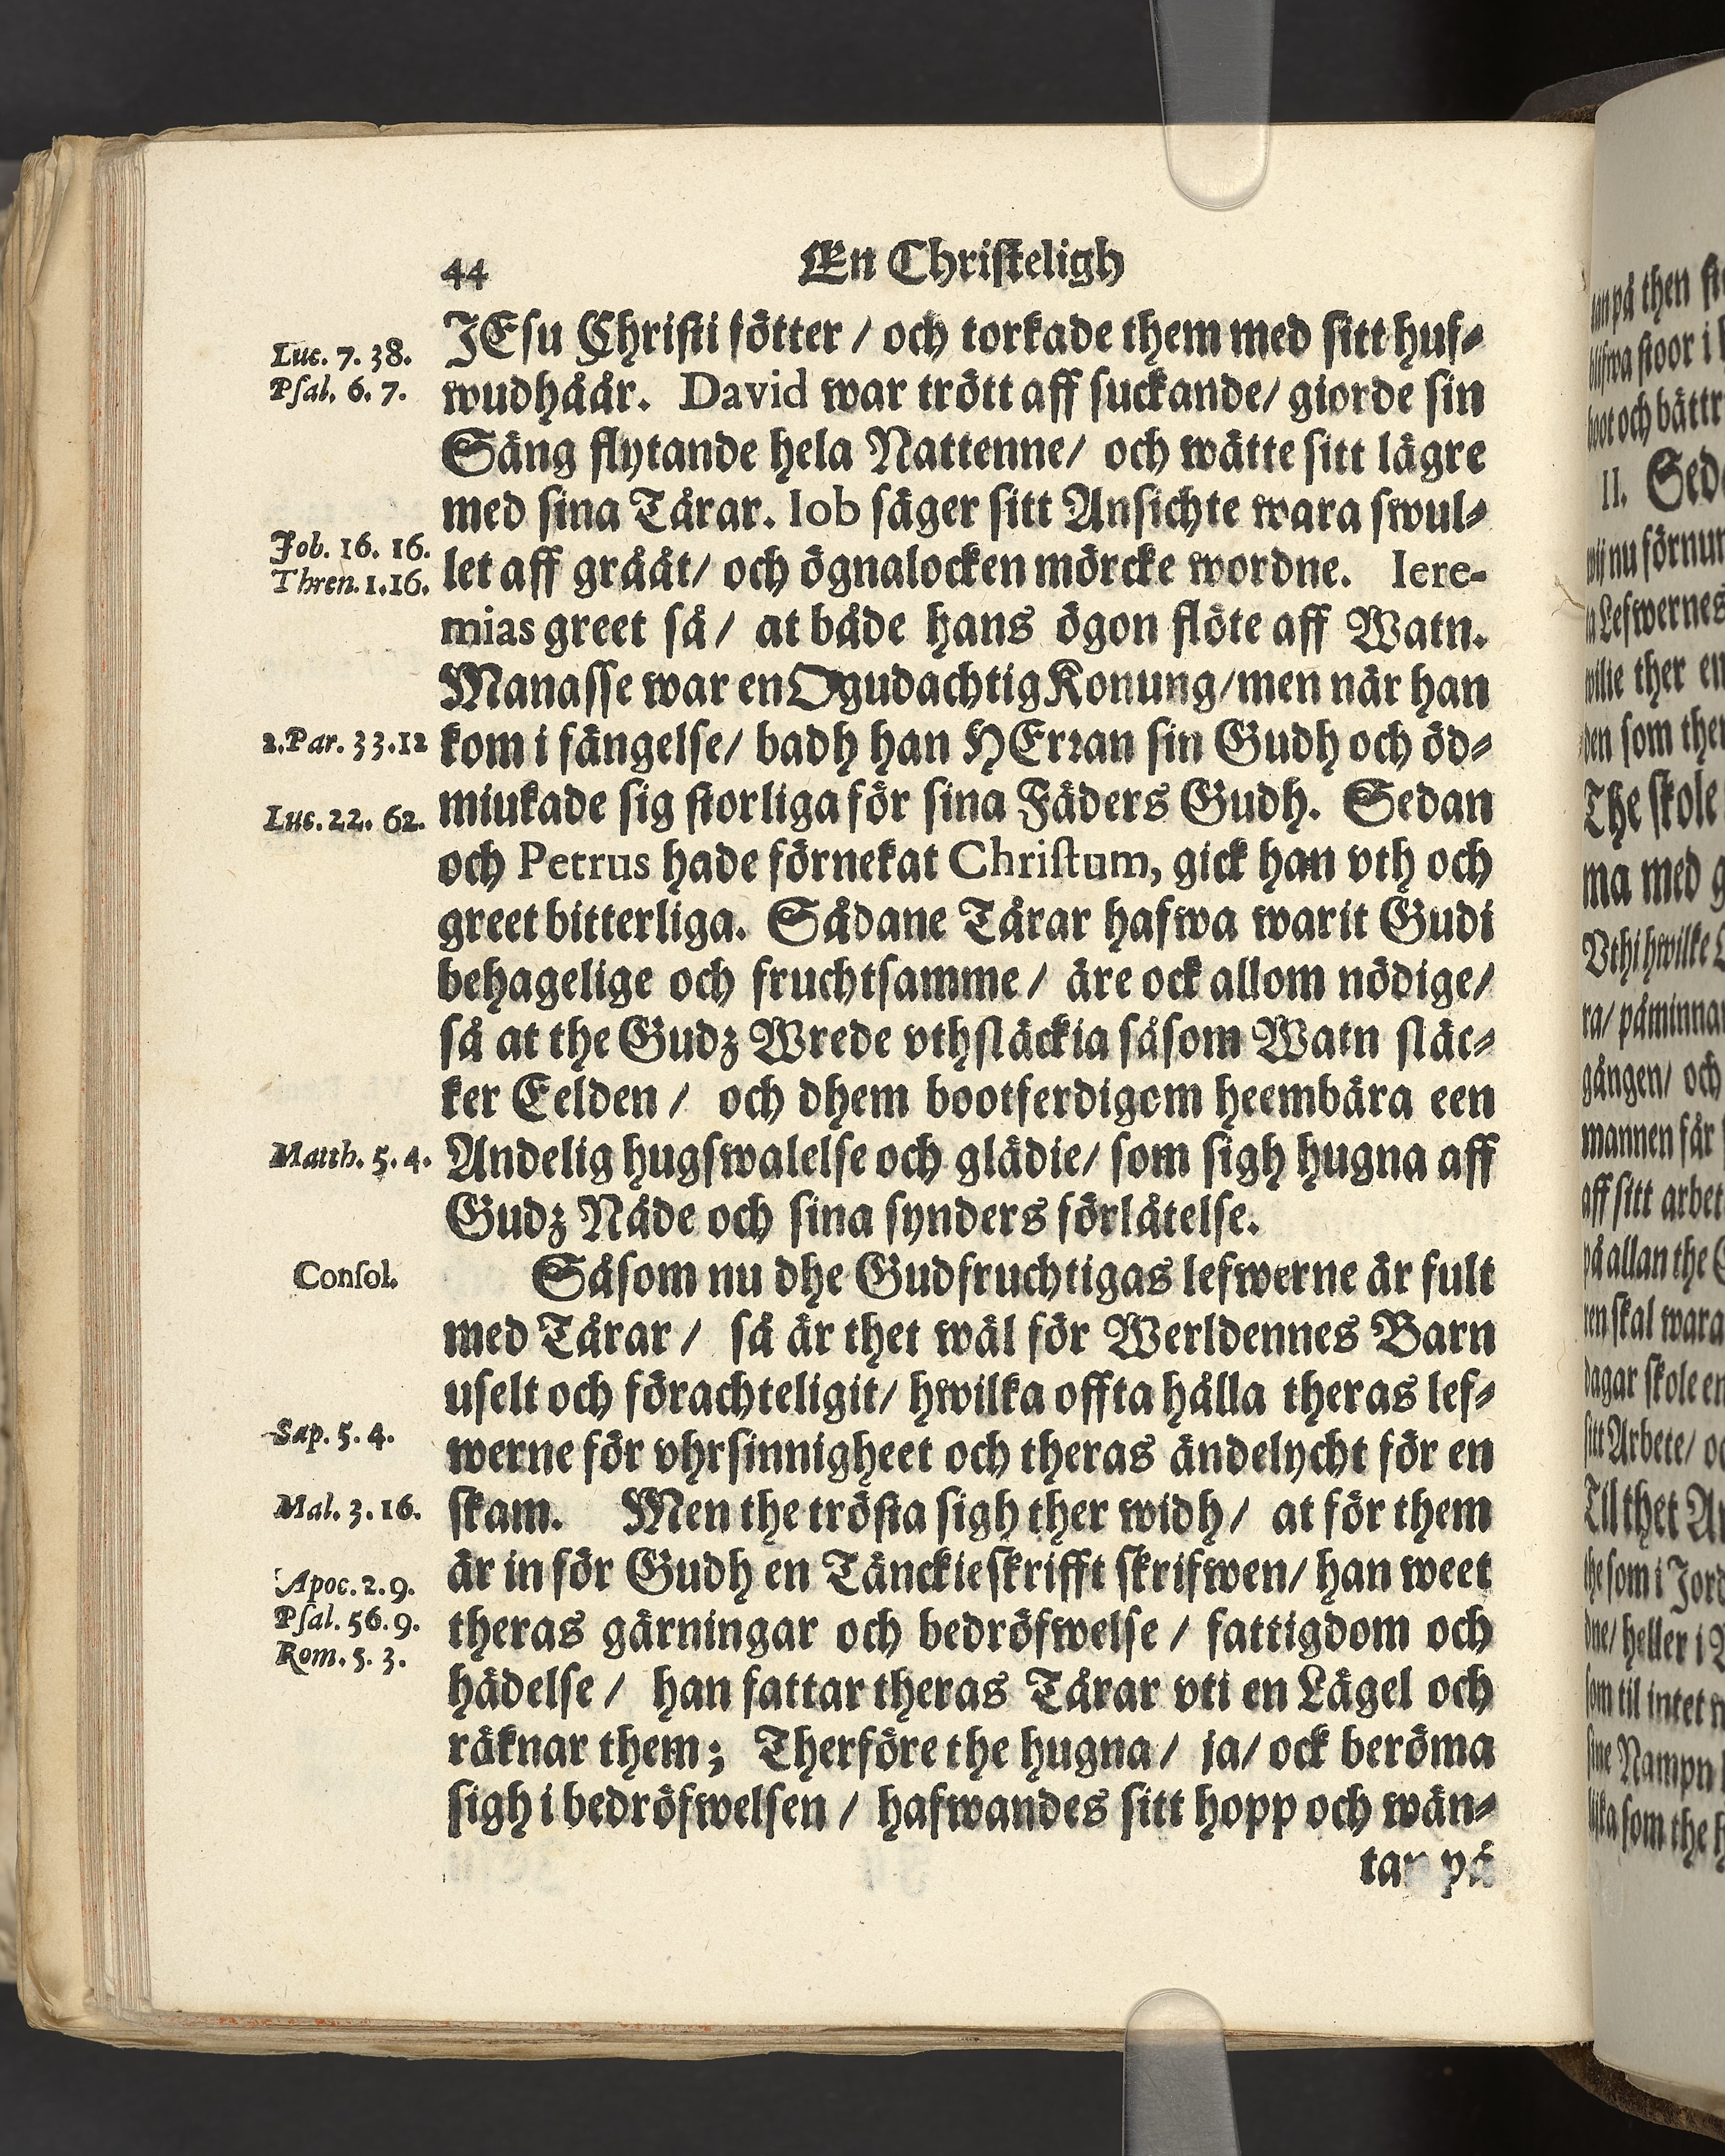 44 En Christeligh
Luc. 7. 38.
Psal. 6. 7.
Job. 16. 16.
Thren. 1. 16.
2. Par. 33. 12
Luc. 22. 62.
Matth. 5. 4.
Consol.
Sap. 5. 4.
Mal. 3. 16.
Apoc. 2. 9.
Psal. 56. 9.
Rom. 5. 3.
JEsu Christi fötter / och torkade them med sitt huf-
wudhåår. David war trött aff suckande / giorde sin
Säng flytande hela Nattenne / och wätte sitt lägre
med sina Tårar. Iob säger sitt Ansichte wara swul-
let aff grååt / och ögnalocken mörcke wordne. Iere-
mias greet så / at både hans ögon flöte aff Watn.
Manasse war en Ogudachtig Konung / men när han
kom i fängelse / badh han HErran sin Gudh och öd-
miukade sig storliga för sina Fäders Gudh. Sedan
och Petrus hade förnekat Christum, gick han vth och
greet bitterliga. Sådane Tårar hafwa warit Gudi
behagelige och fruchtsamme / äre ock allom nödige /
så at the Gudz Wrede vthsläckia såsom Watn släc-
ker Eelden / och dhem bootferdigom heembära een
Andelig hugswalelse och glädie / som sigh hugna aff
Gudz Nåde och sina synders förlåtelse.
Såsom nu dhe Gudfruchtigas lefwerne är fult
med Tårar / så är thet wäl för Werldennes Barn
uselt och förachteligit / hwilka offta hålla theras lef-
werne för vhrsinnigheet och theras ändelycht för en
skam. Men the trösta sigh ther widh / at för them
är in för Gudh en Tänckieskrifft skrifwen / han weet
theras gärningar och bedröfwelse / fattigdom och
hädelse / han fattar theras Tårar vti en Lägel och
räknar them; Therföre the hugna / ja / ock beröma
sigh i bedröfwelsen / hafwandes sitt hopp och wän-
tan på